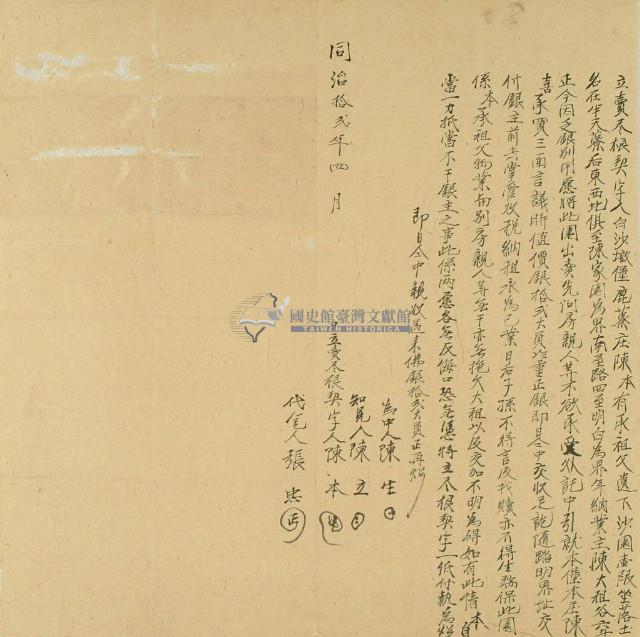 立賣杜根契字人白沙墩堡鹿藔庄陳本有承祖父遺下沙園壹叚坐落土
名在半天藔后東西北俱至陳家園為界南至路四至明白為界年納業主陳大租谷
正今因乏銀別用愿將此園出賣先問房親人等不欲承受外託中引就本堡本庄陳
喜承買三面言議時值價銀拾弍大員 重正銀即日仝中交收足訖隨踏明界址交
付銀主前去掌管收稅納租永為己業日后子孫不得言及找贖亦不得生端保此園
係本承祖父物業與別房親人等無干亦無拖欠大租以及交加不明為碍如有此情本
當一力抵當不干銀主之事此係兩愿各無反悔口恐無憑特立杜根契字一紙付執為炤
即日仝中親收過來佛銀拾弍大員正再炤
為中人陳 生
知見人陳 立
同治拾弍年四月
立賣杜根契字人陳 本
代筆人張 忠
國史館臺灣文獻館
TAIWAN HISTORICA